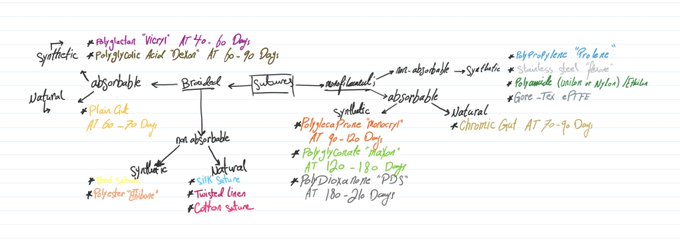 * Polyglactan "Vicryl" AT 40-60 Days
Synthetic * Polyglycolic Acid "Dexon" AT 60-90 Days
absorbable
Braided
sutures
monofilament
non-absorbable
Synthetic
* PolyPropylene "Prolene"
* Stainless steel
* Polyamide (unilon or Nylon) / Ethilon
* Gore-Tex ePTFE
absorbable
Natural
* Plain Gut
AT 60-70 Days
Synthetic
* PolyglecaProne "monocryl"
AT 90-120 Days
* PolyglyConate "maxon"
AT 120-180 Days
* PolyDioxanone "PDS"
AT 180-210 Days
Natural
* Chromic Gut AT 70-90 Days
non absorbable
Synthetic
*
* Polyester "Ethibond"
Natural
* Silk Suture
* Twisted linen
* Cotton suture